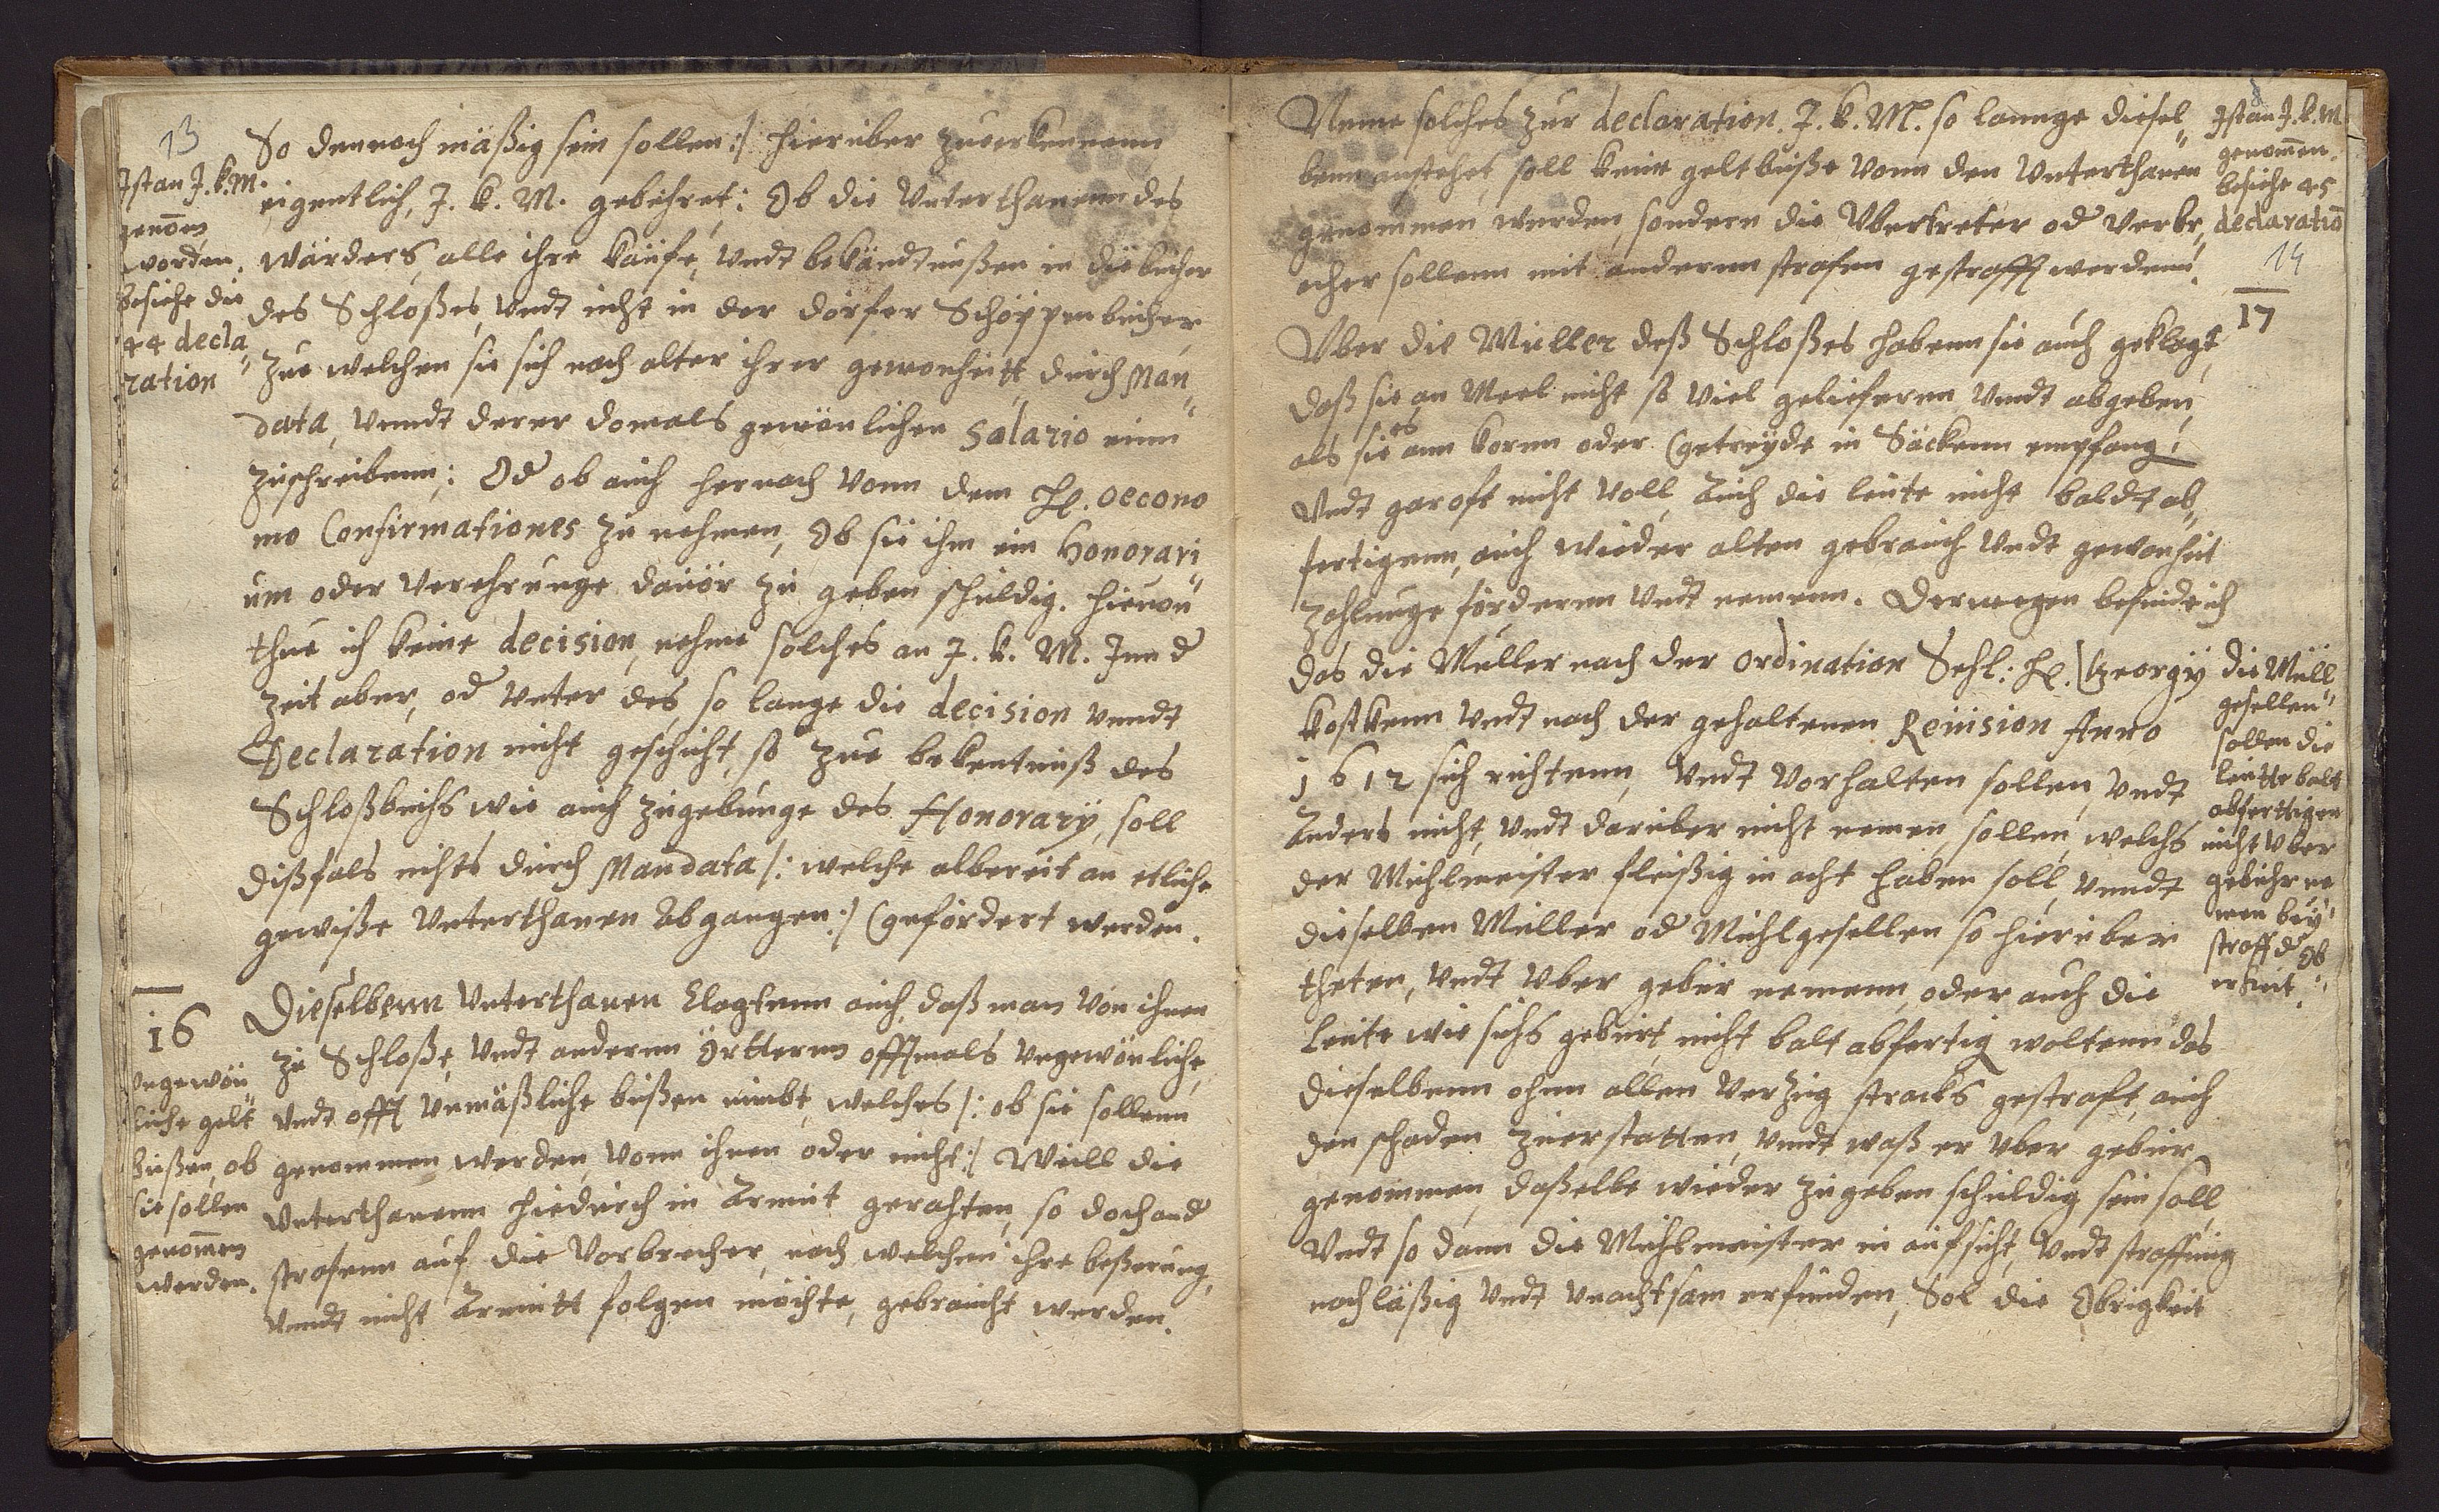 13
So dennoch mäßig sein sollen :/ hierüber zuerkennenn
eigentlich, J. k. M. gebühret: Ob die Unterthanenn des
Wärders, alle ihre käufe, Undt bekändtnußen in die bücher
des Schloßes, Undt nicht in der dörfer Schöppenbücher,
Zue welchen sie sich nach alter ihrer gewonheitt durch Man„
data, Unndt derer domals gewönlichen Salario einn
zuschreibenn; Od ob auch hernach Vonn dem H. Oecono
mo Confirmationes zu nehmen, Ob sie ihm ein Honorari
um oder Verehrunge davör zu geben schuldig. hievon
thue ich keine decision, nehme solches an J. k. M. Inn d
zeit aber, od Unter des, so lange die decision Unndt
Declaration nicht geschicht, so zue bekentniß des
Schloßbuchs wie auch zugebunge des Honorarÿ, soll
dißfals nichts durch Mandata /: welche albereit an etliche
gewiße Unterthanen Abgangen :/ gefördert werden.
Ist an J. k. M.
genom̄
worden.
besiehe die
44 decla„
ration
16
Dieselbenn Unterthanen klagtenn auch, daß man Von ihnen
zu Schloße, Undt anderenn Örtterenn offtmals Ungewönliche,
Undt offt Unmäßliche bußen nimbt, welches /: ob sie sollenn
genommen werden, Vonn ihnen oder nicht :/ Weill die
Unterthanenn hiedurch in Armut gerahten, so doch and
strafenn auf die Vorbrecher, nach welchen ihre beßerung,
Unndt nicht Armutt folgen möchte, gebraucht werden.
Ungewön
liche gelt
bußen, ob
sie sollen
genom̄en
werden.
Neme solches zur declaration. J. k. M. so lannge diesel„
benn anstehet, soll keine geltbuße Vonn den Unterthanen
genommen werden, sondern die Ubertreter od Verbr„
echer sollenn mit anderenn strafen gestrafft werdenn.
Ist an J. k. M
genom̄en.
besiehe 45
declaratiō
14
17
Uber die Müller deß Schloßes habenn sie auch geklagt,
daß sie an Meel nicht so Viel gelieferenn Undt abgeben,
als sie es ann korenn oder getreÿde in Säckenn empfang:
Undt gar oft nicht Voll, Auch die leute nicht baldt ab„
fertigenn, auch wieder alten gebrauch Undt gewonheit
zahlunge förderenn Undt nemenn. Derwegen befinde ich
das die Müller nach der Ordination Sehl: H. Georgÿ
kostkenn Undt nach der gehaltenen Revision Anno
1612 sich richtenn, Undt Vorhalten sollen, Undt
Anders nicht, Undt darüber nicht nemen, sollen, welchs
der Mühlmeister fleißig in acht haben soll, Unndt
dieselben Müller od Mühlgesellen so hierüber
theten, Undt Uber gebür nemenn, oder auch die
leute wie sichs gebürt, nicht balt abfertig woltenn das
dieselbenn ohnn allen Verzug stracks gestraft, auch
den schaden zuerstatten, Unndt waß er Uber gebür
genommen, daßelbe wieder zugeben schuldig sein soll,
Undt so dann die Mühlmeister in aufsicht, Undt straffung
nachläßig Undt Unachtsam erfunden, Sol die Obrigkeit
die Müll„
gesellen
sollen die
leutte balt
abfertigen
nicht Uber
gebühr ne
men beÿ
straff d Ob
rikeit.